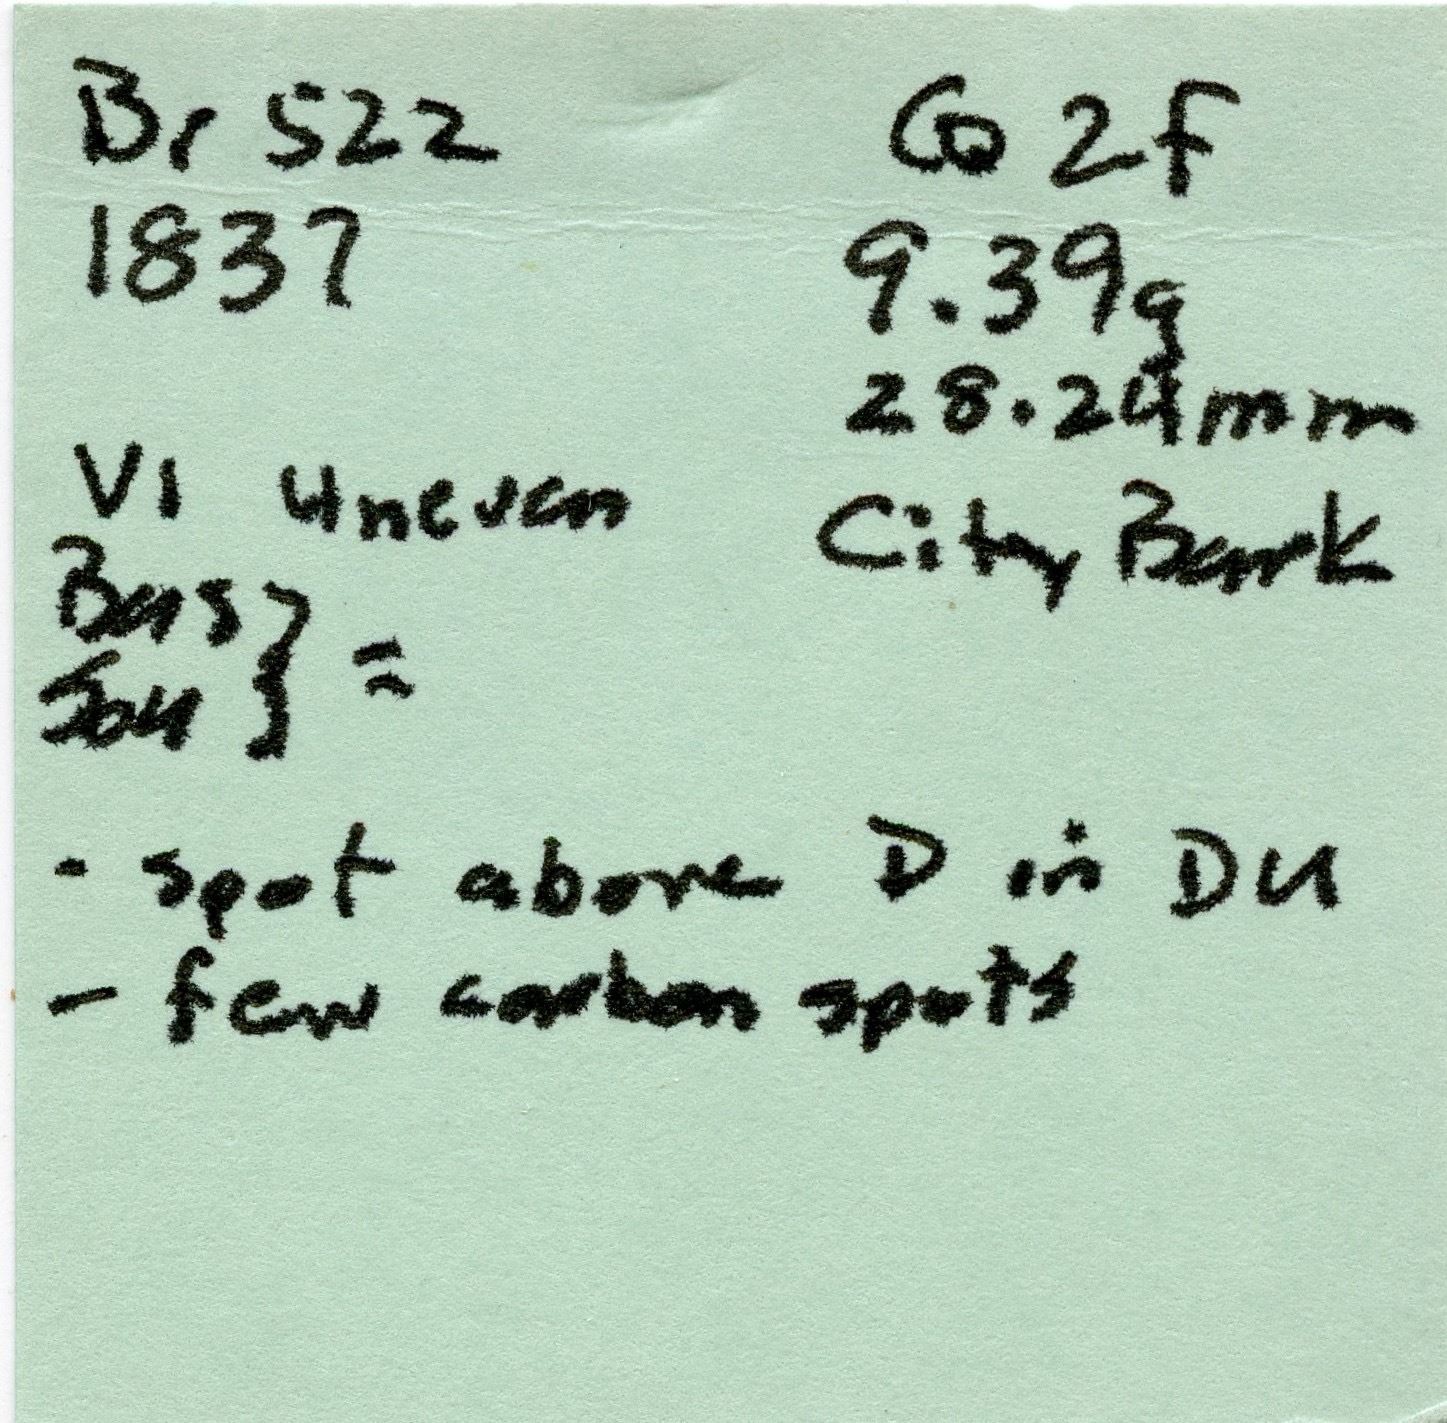 Br 522
1837
Co 2f
9.39g
28.24mm
City Bank
V1 uneven
Bas } =
Sou }
· spot above D in DU
- few carbon spots